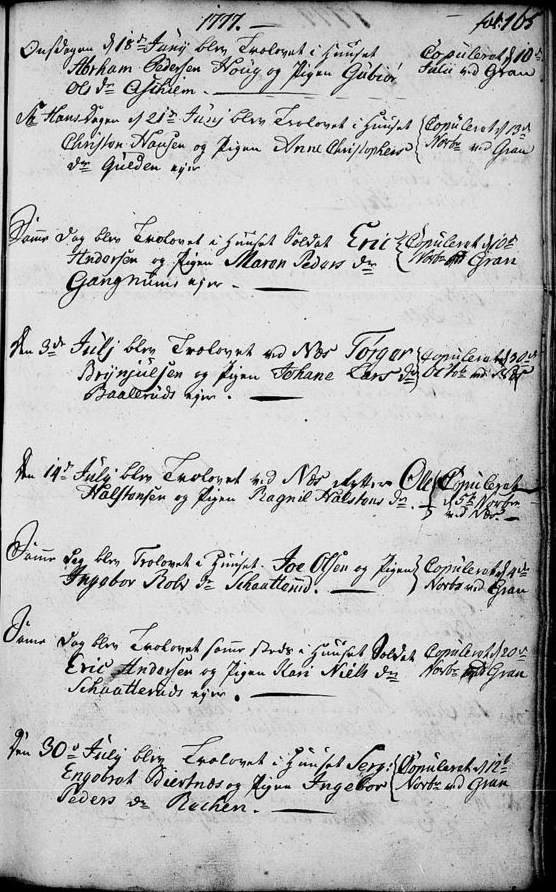 1777. fol: 165
Onsdagen d 18de Junj blev Trolovet i Huuset
Abrham Pedersen Houg og Pigen Gubiør
Ols dr Aschiem.
Copulerot d 10de
Julii ved Gran
St Hans Dagen d 21de Junj blev Trolovet i Huuset
Christen Hansen og Pigen Anne Christophers
dr Gulden ejer
Copulerot d 13de
Novbr ved Gran
Samme Dag blev Trolovet i Huuset Soldat Eric
Andersen og Pigen Maren Peders dr
Gangnums ejer.
Copulerot d 10de
Novbr ved Gran
Den 3de Julj blev Trolovet ved Næs Torger
Brynjulsen og Pigen Johane Lars dr
Baaleruds ejer.
Copulerot d 30de
Octob ved Næs
Den 14de Julj blev Trolovet ved Næs Rytter Olle
Halstensen og Pigen Ragnil Halstens dr.
Copulerat
d 5te Novbr
ved Næs.
Samme Dag blev Trolovet i Huuset Joe Olsen og Pigen
Ingebor Rolv dr Schaatterud.
Copulerot d 4de
Novbr ved Gran
Samme Dag blev Trolovet samme steds i Huuset Soldat
Eric Andersen og Pigen Kari Niels dr
Schaatteruds ejer.
Copulerot d 20de
Novbr ved Gran
Den 30d Julj blev Trolovet i Huuset Serg:
Engebrot Biertnæs og Pigen Ingebor
Peders dr Rachen.
Copulerot d 12t
Novbr ved Gran